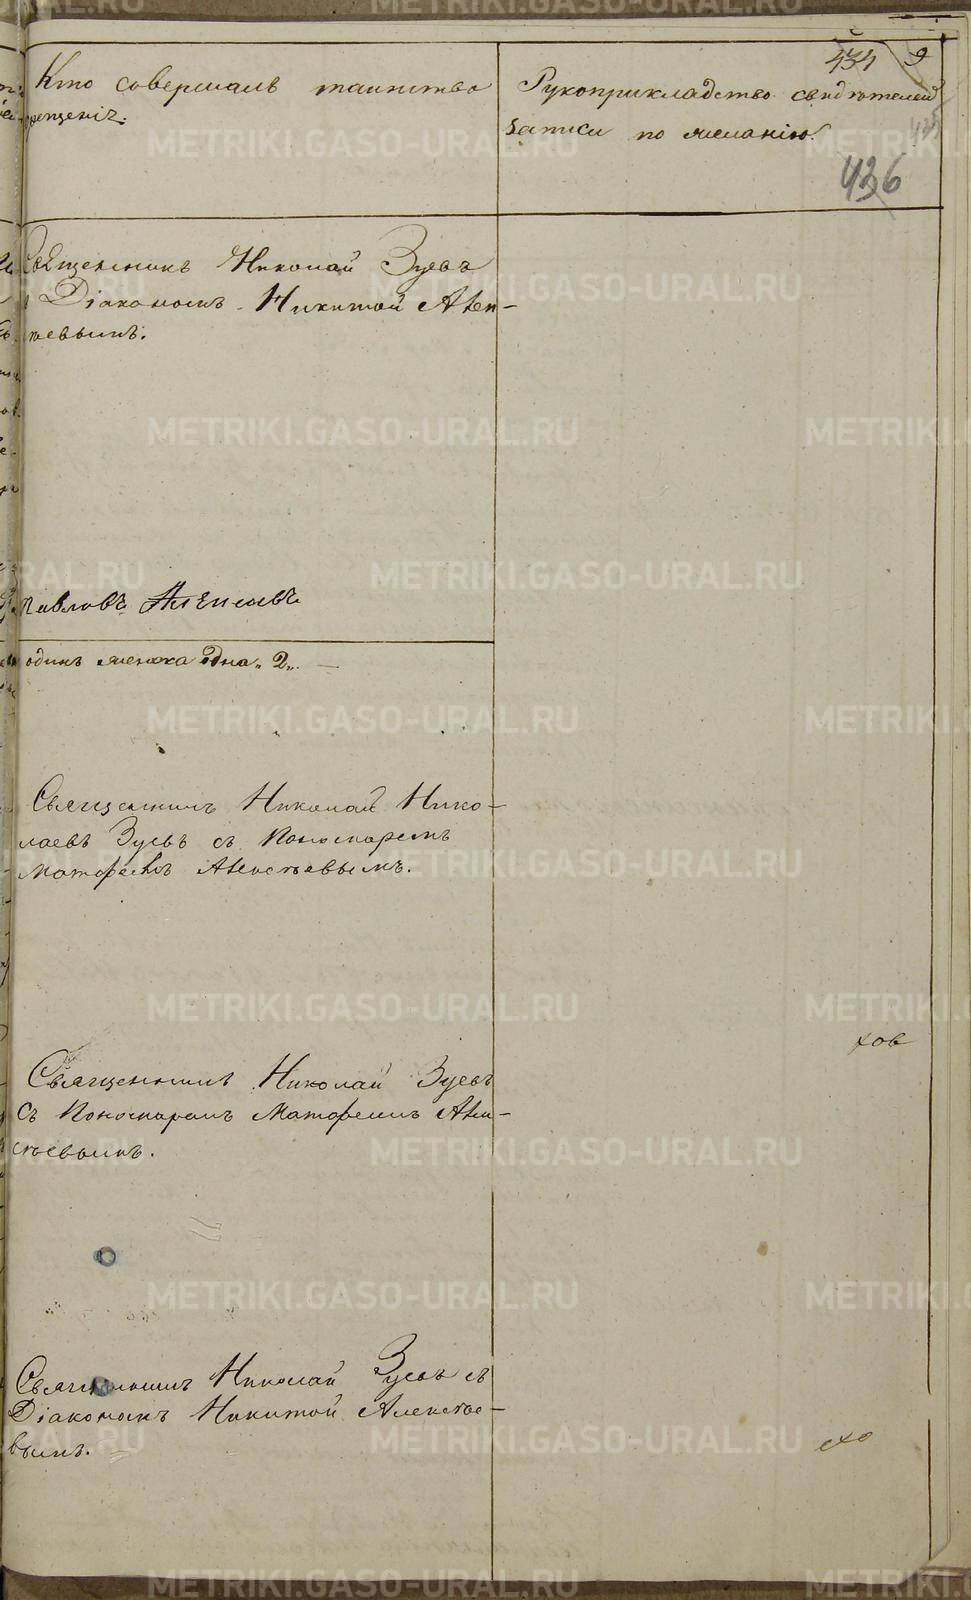 434 9
Кто совершалъ таинство
крещенія.
Рукоприкладство свидѣтелей
записи по желанію.
436
Священникъ Николай Зуевъ
Діакономъ Никитой Алек-
тьевымъ.
Павловъ
одинъ женска одна „2„. —
Священникъ Николай Нико-
лаевъ Зуевъ съ Пономаремъ
Матфеемъ Алексѣевымъ.
хов
Священникъ Николай Зуевъ
съ Пономаремъ Матфеемъ Алек-
сѣевымъ.
Священникъ Николай Зуевъ съ
Діакономъ Никитой Алексѣе-
вымъ.
METRIKI.GASO-URAL.RU